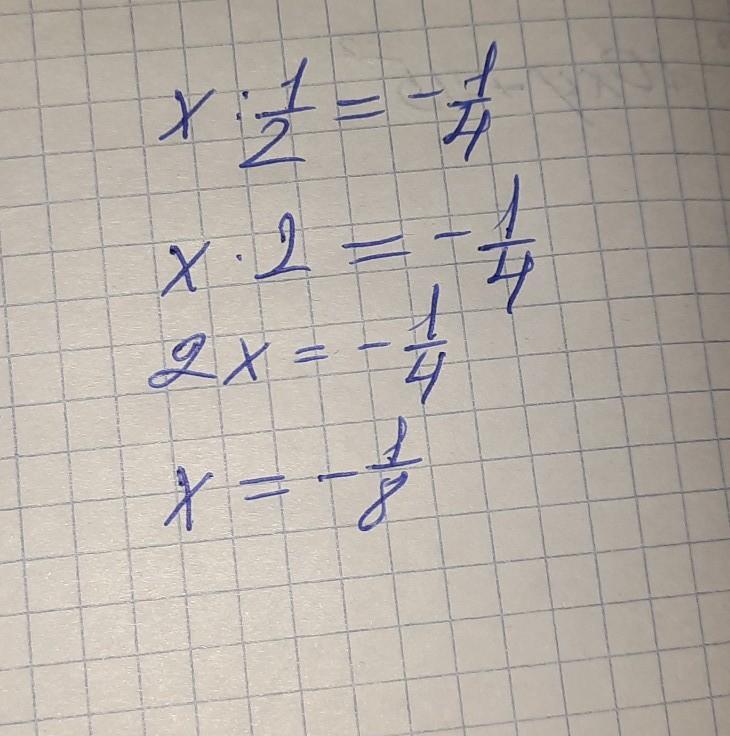 x : 1/2 = - 1/4
x · 2 = - 1/4
2x = - 1/4
x = - 1/8